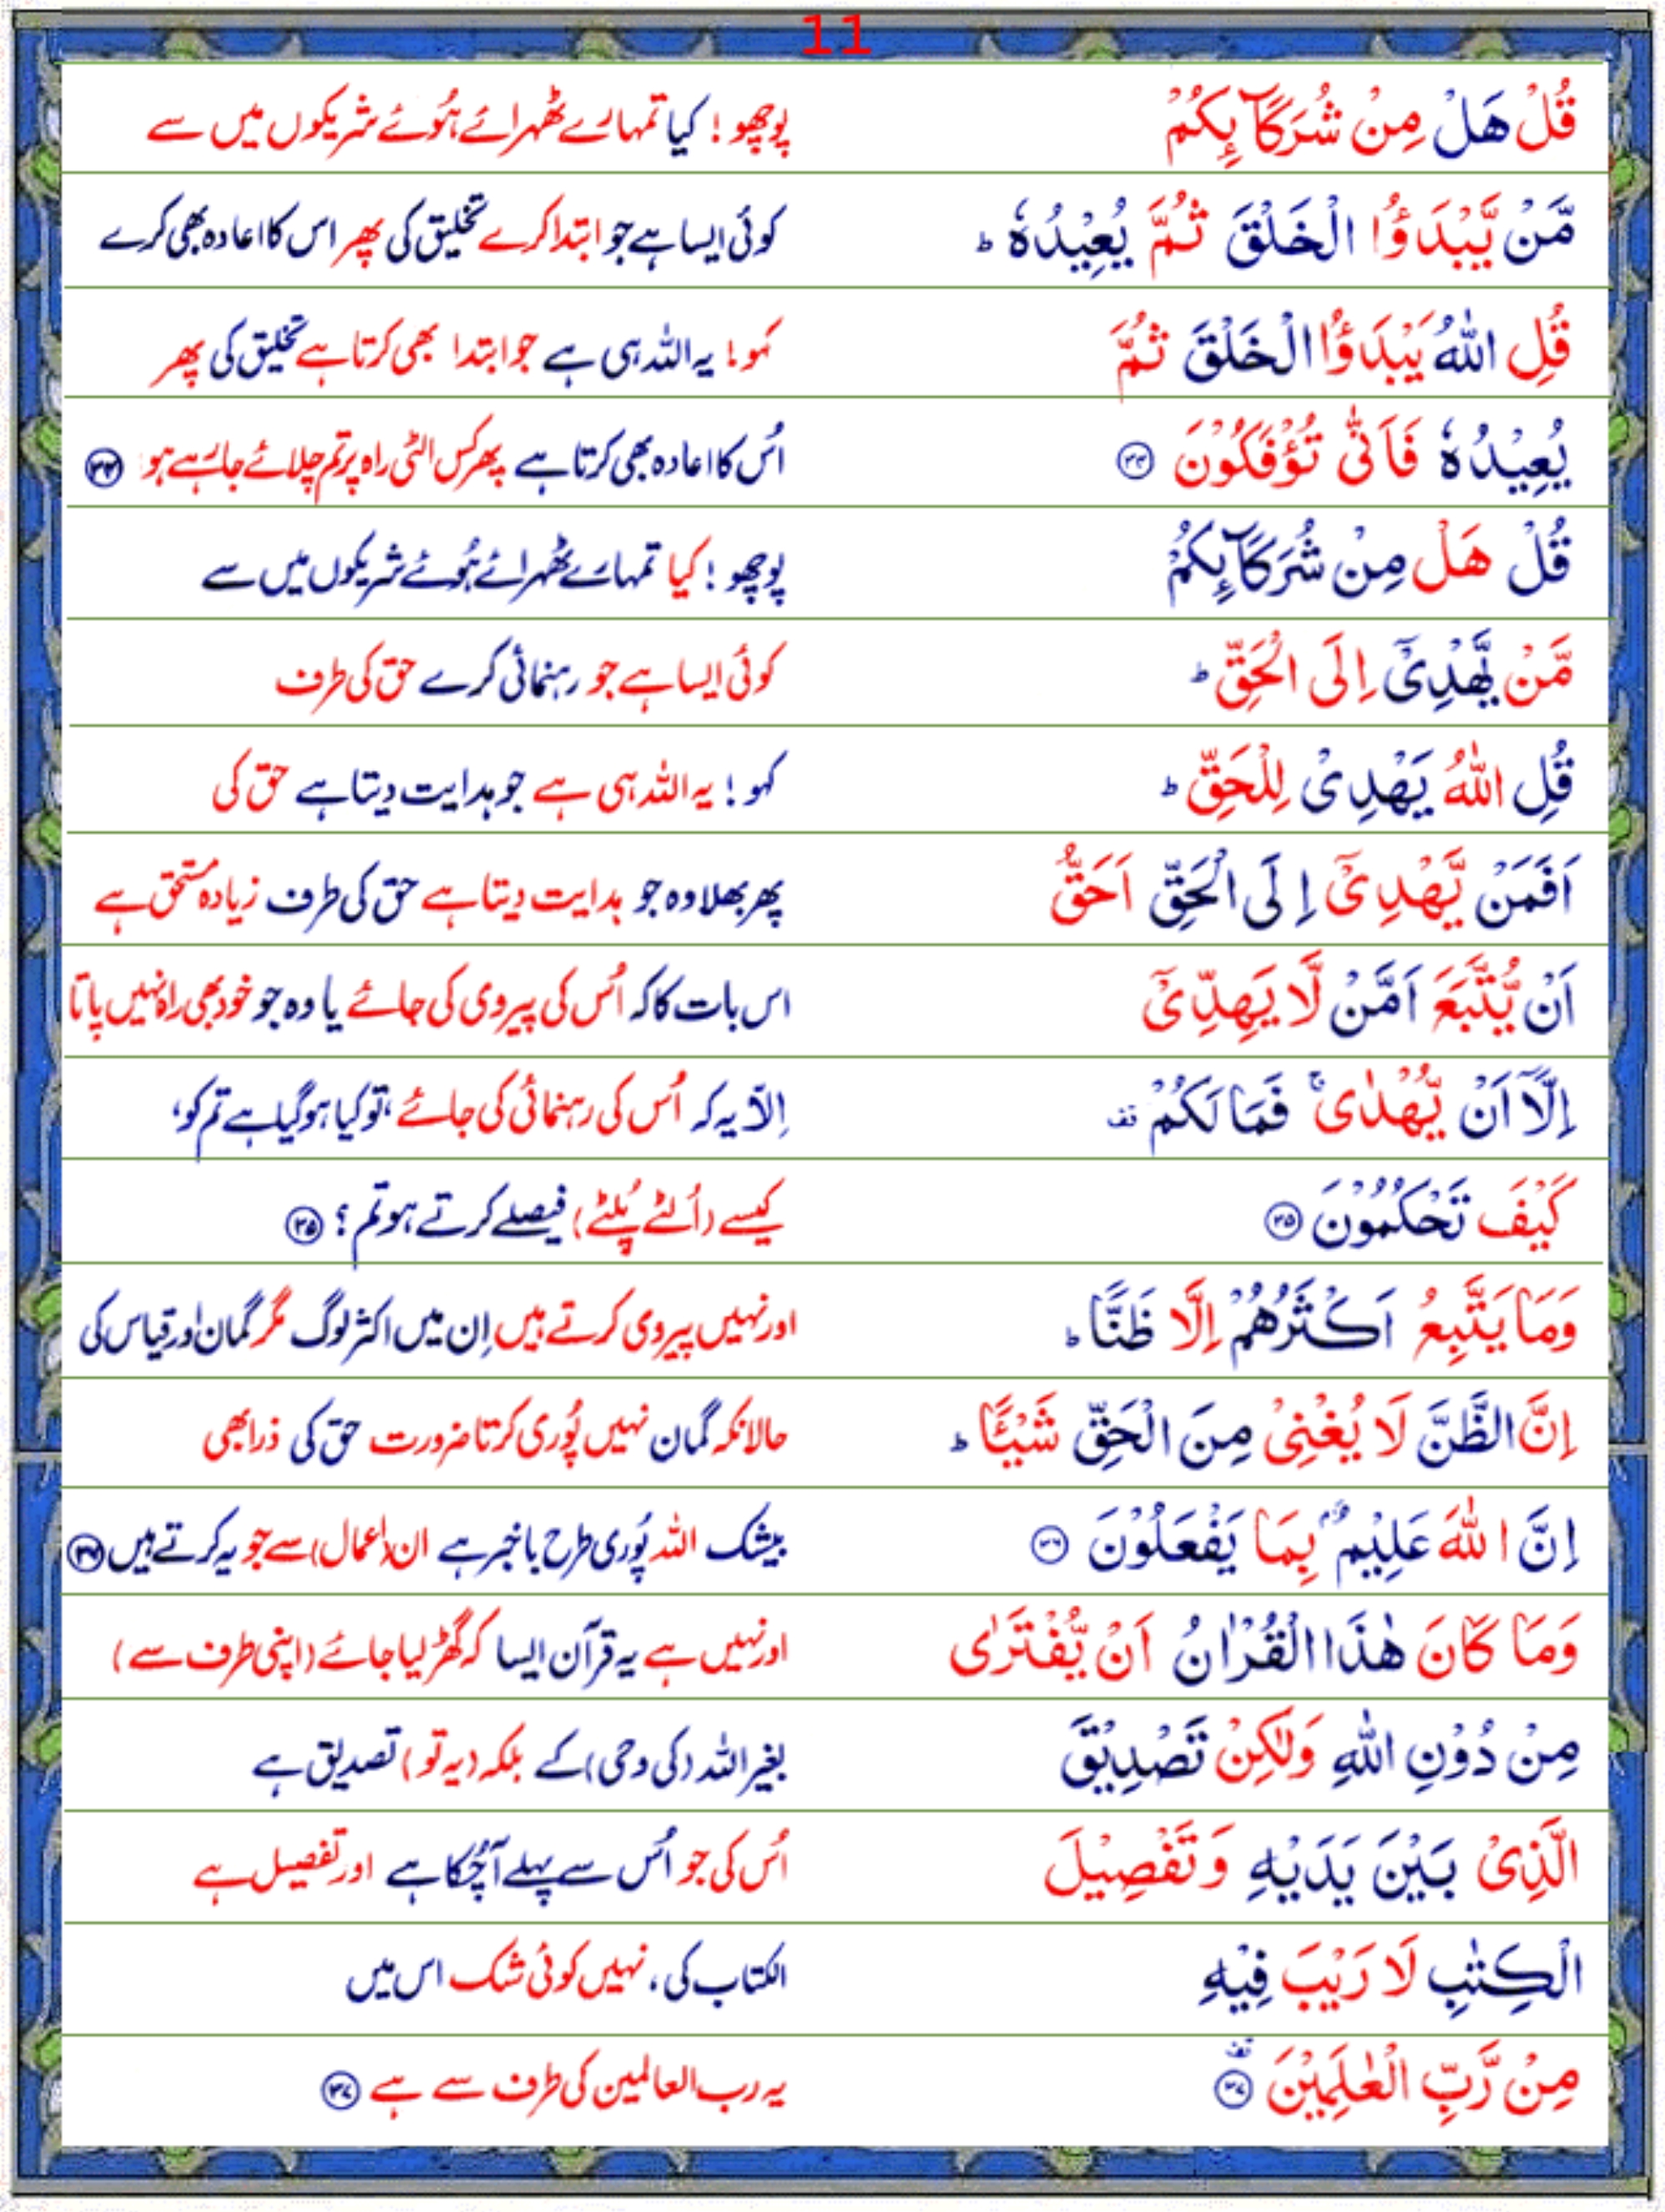 11
قُلْ هَلْ مِنْ شُرَكَآئِكُمْ پوچھو! کیا تمہارے ٹھہرائے ہُوئے شریکوں میں سے
مَّنْ يَّبْدَؤُا الْخَلْقَ ثُمَّ يُعِيْدُهٗ ؕ کوئی ایسا ہے جو ابتدا کرے تخلیق کی پھر اس کا اعادہ بھی کرے
قُلِ اللّٰهُ يَبْدَؤُا الْخَلْقَ ثُمَّ کہو! یہ اللہ ہی ہے جو ابتدا بھی کرتا ہے تخلیق کی پھر
يُعِيْدُهٗ فَاَنّٰى تُؤْفَكُوْنَ ﴿۳۴﴾ اُس کا اعادہ بھی کرتا ہے پھر کس الٹی راہ پر تم چلائے جا رہے ہو ﴿۳۴﴾
قُلْ هَلْ مِنْ شُرَكَآئِكُمْ پوچھو! کیا تمہارے ٹھہرائے ہُوئے شریکوں میں سے
مَّنْ يَّهْدِىْۤ اِلَى الْحَقِّ ؕ کوئی ایسا ہے جو رہنمائی کرے حق کی طرف
قُلِ اللّٰهُ يَهْدِىْ لِلْحَقِّ ؕ کہو! یہ اللہ ہی ہے جو ہدایت دیتا ہے حق کی
اَفَمَنْ يَّهْدِىْۤ اِلَى الْحَقِّ اَحَقُّ پھر بھلا وہ جو ہدایت دیتا ہے حق کی طرف زیادہ مستحق ہے
اَنْ يُّتَّبَعَ اَمَّنْ لَّا يَهِدِّىْۤ اس بات کا کہ اُس کی پیروی کی جائے یا وہ جو خود بھی راہ نہیں پاتا
اِلَّاۤ اَنْ يُّهْدٰى ۚ فَمَا لَكُمْ قف اِلّا یہ کہ اُس کی رہنمائی کی جائے ، تو کیا ہو گیا ہے تم کو،
كَيْفَ تَحْكُمُوْنَ ﴿۳۵﴾ کیسے (اُلٹے پُلٹے) فیصلے کرتے ہو تم؟ ﴿۳۵﴾
وَمَا يَتَّبِعُ اَكْثَرُهُمْ اِلَّا ظَنًّا ؕ اور نہیں پیروی کرتے ہیں اِن میں اکثر لوگ مگر گمان اور قیاس کی
اِنَّ الظَّنَّ لَا يُغْنِىْ مِنَ الْحَقِّ شَيْـًٔا ؕ حالانکہ گمان نہیں پُوری کرتا ضرورت حق کی ذرا بھی
اِنَّ اللّٰهَ عَلِيْمٌۢ بِمَا يَفْعَلُوْنَ ﴿۳۶﴾ بیشک اللہ پُوری طرح باخبر ہے ان (اعمال) سے جو یہ کرتے ہیں ﴿۳۶﴾
وَمَا كَانَ هٰذَا الْقُرْاٰنُ اَنْ يُّفْتَرٰى اور نہیں ہے یہ قرآن ایسا کہ گھڑ لیا جائے (اپنی طرف سے)
مِنْ دُوْنِ اللّٰهِ وَلٰكِنْ تَصْدِيْقَ بغیر اللہ (کی وحی) کے بلکہ (یہ تو) تصدیق ہے
الَّذِىْ بَيْنَ يَدَيْهِ وَتَفْصِيْلَ اُس کی جو اُس سے پہلے آچُکا ہے اور تفصیل ہے
الْكِتٰبِ لَا رَيْبَ فِيْهِ الکتاب کی، نہیں کوئی شک اس میں
مِنْ رَّبِّ الْعٰلَمِيْنَ قف ﴿۳۷﴾ یہ رب العالمین کی طرف سے ہے ﴿۳۷﴾